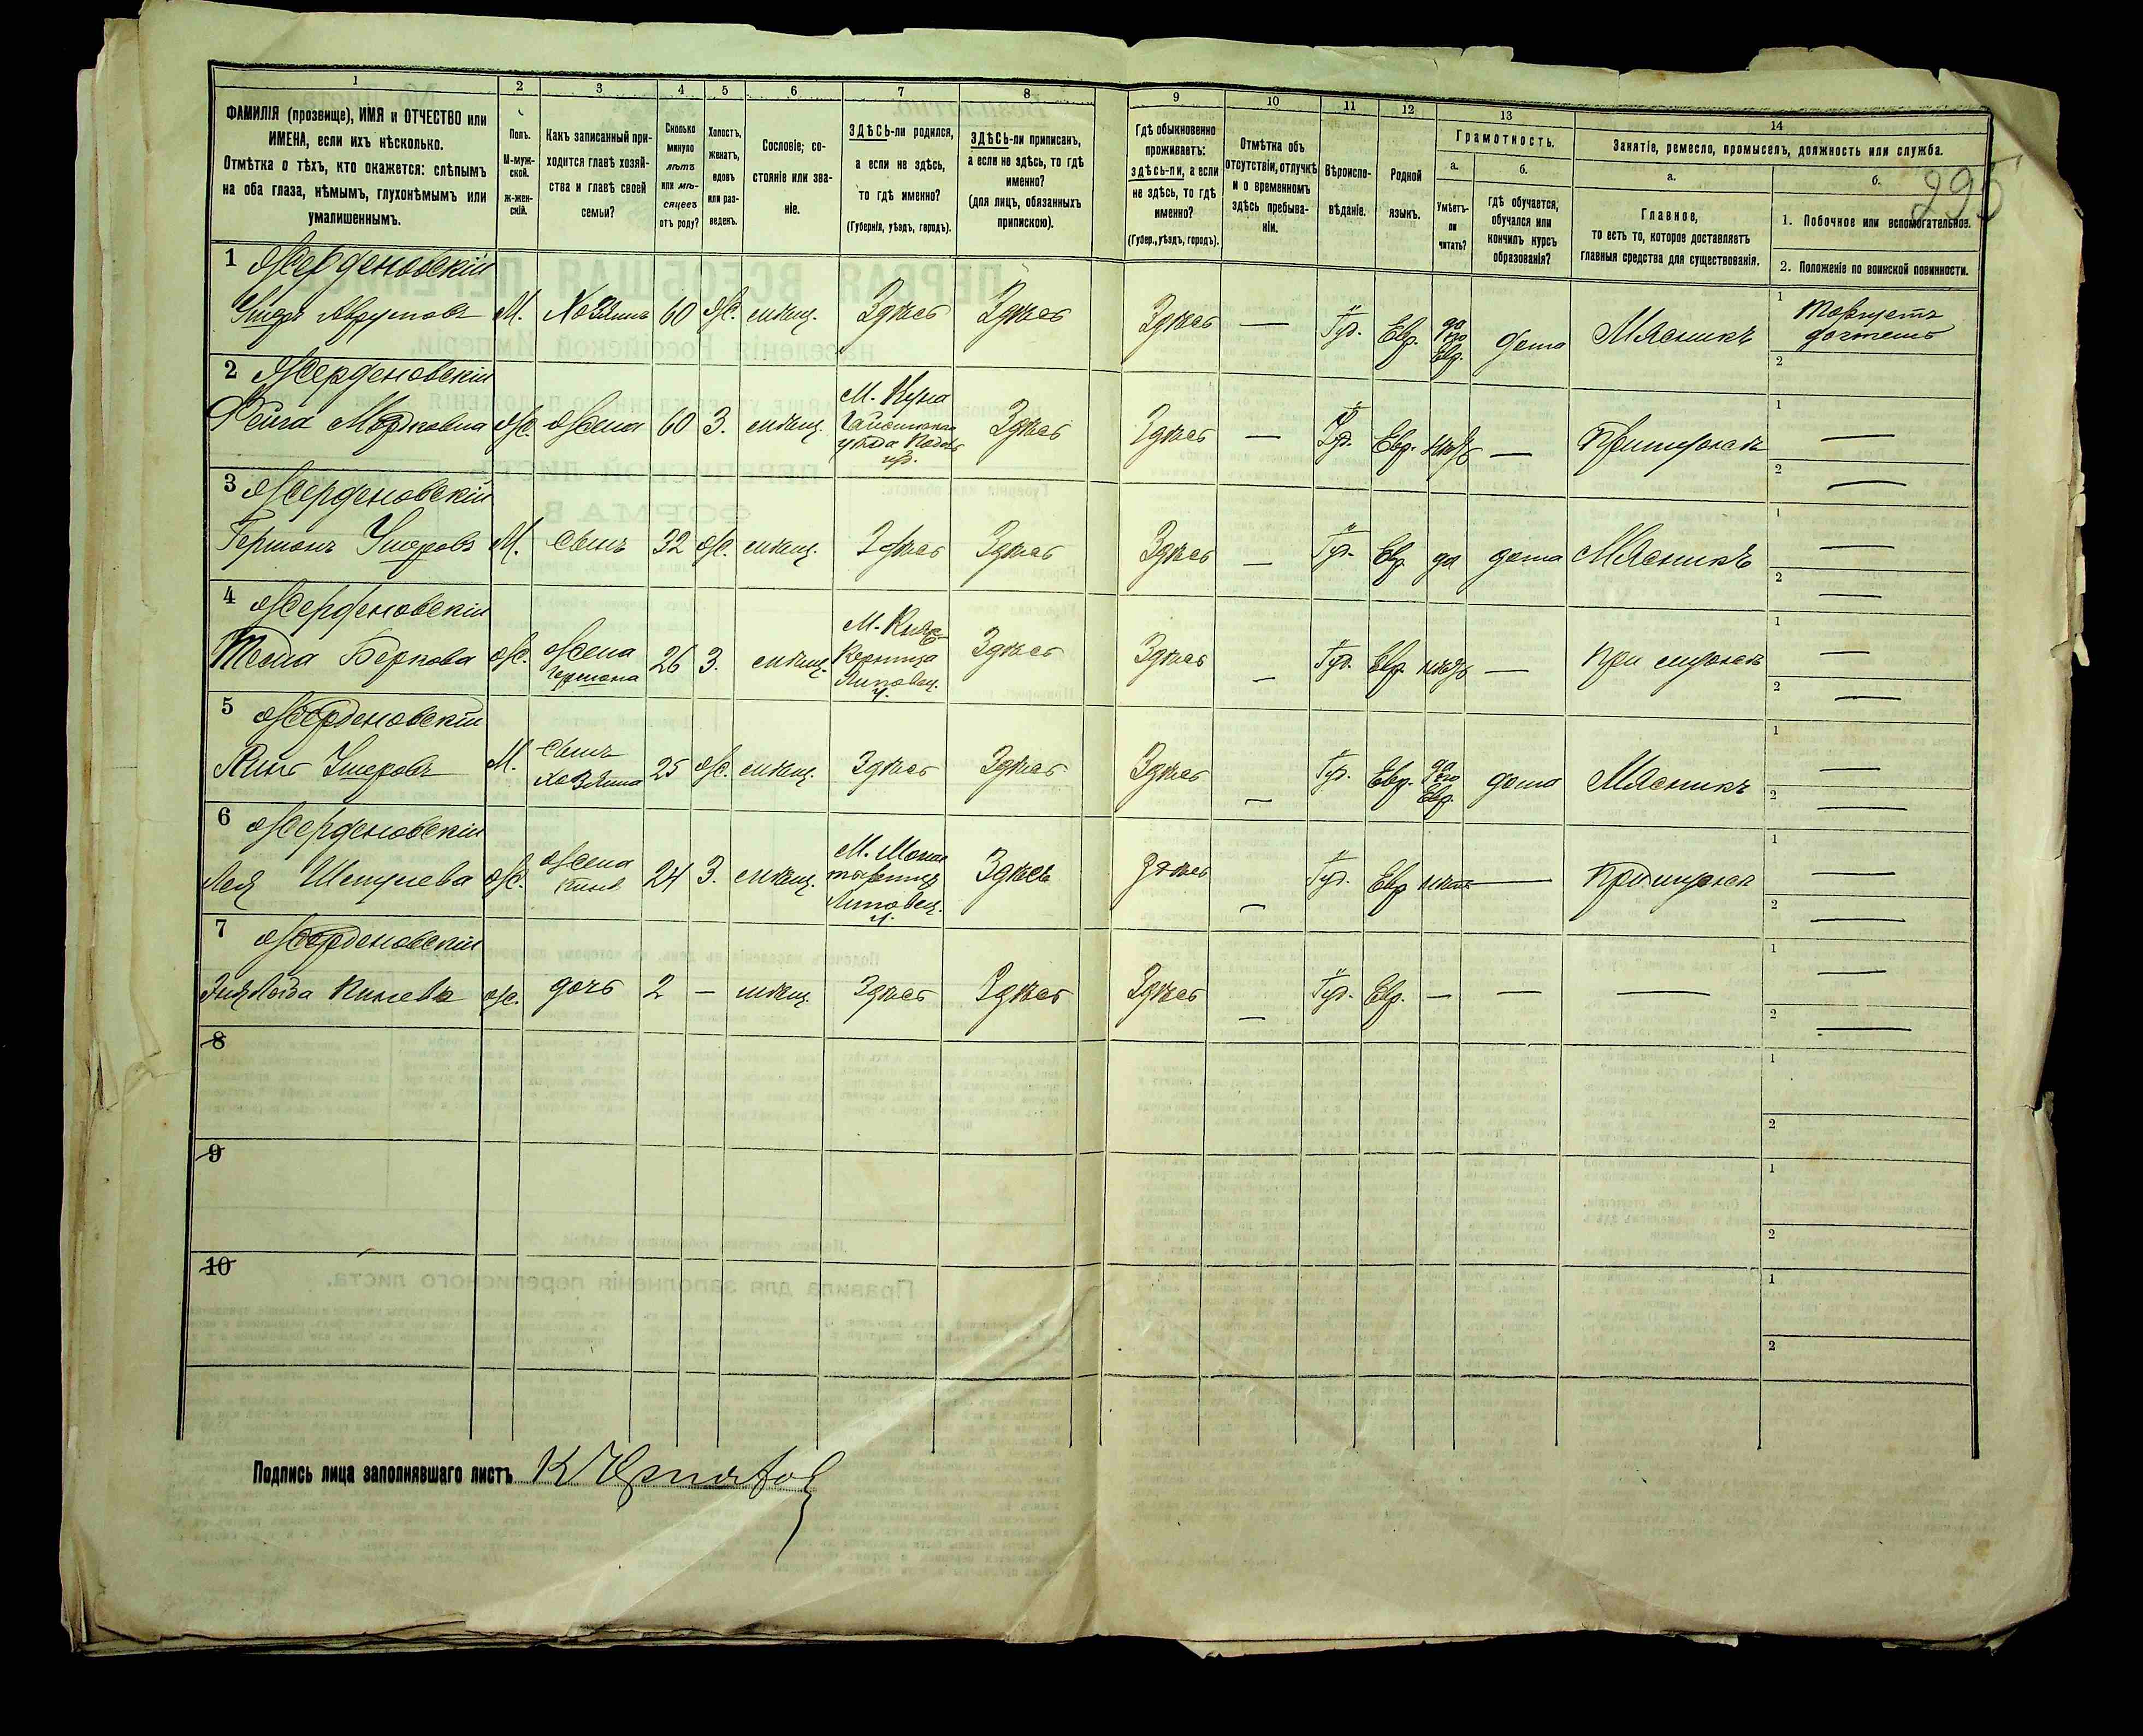 1
2
3
4
5
6
7
8
9
10
11
12
13
14
ФАМИЛІЯ (прозвище), ИМЯ и ОТЧЕСТВО или
ИМЕНА, если ихъ нѣсколько.
Отмѣтка о тѣхъ, кто окажется: слѣпымъ
на оба глаза, нѣмымъ, глухонѣмымъ или
умалишеннымъ.
Полъ.
М-муж-
ской.
Ж-жен-
скій.
Какъ записанный при-
ходится главѣ хозяй-
ства и главѣ своей
семьи?
Сколько
минуло
лѣтъ
или мѣ-
сяцевъ
отъ роду?
Холостъ,
женатъ,
вдовъ
или раз-
веденъ.
Сословіе; со-
стояніе или зва-
ніе.
ЗДѢСЬ-ли родился,
а если не здѣсь,
то гдѣ именно?
(Губернія, уѣздъ, городъ).
ЗДѢСЬ-ли приписанъ,
а если не здѣсь, то гдѣ
именно?
(для лицъ, обязанныхъ
припискою).
Гдѣ обыкновенно
проживаетъ:
здѣсь-ли, а если
не здѣсь, то гдѣ
именно?
(Губер., уѣздъ, городъ).
Отмѣтка объ
отсутствіи, отлучкѣ
и о временномъ
здѣсь пребыва-
ніи.
Вѣроиспо-
вѣданіе.
Родной
языкъ.
Грамотность.
а.
Умѣетъ-
ли
читать?
б.
гдѣ обучается,
обучался или
кончилъ курсъ
образованія?
Занятіе, ремесло, промыселъ, должность или служба.
а.
Главное,
то есть то, которое доставляетъ
главныя средства для существованія.
б.
295
1. Побочное или вспомогательное.
2. Положеніе по воинской повинности.
1 Жерденовскій
М. Хозяинъ 60 Ж. мѣщ. Здѣсь Здѣсь Здѣсь — Іуд. Евр. да по Евр. дома Мясникъ 1
2
2 Жерденовскій
Фейга Мордковна Ж. Жена 60 З. мѣщ. Здѣсь Здѣсь — Іуд. Евр. нѣтъ — 1 —
2 —
3 Жерденовскій
Гершонъ Умеровъ М. Сынъ 32 Ж. мѣщ. Здѣсь Здѣсь Здѣсь — Іуд. Евр да дома Мясникъ 1 —
2 —
4 Жерденовскій
Беркова Ж. Жена Гершона 26 З. мѣщ. Липовец. у. Здѣсь Здѣсь — Іуд. Евр. нѣтъ — При мужѣ 1 —
2 —
5 Жерденовскій
М. Сынъ Хозяина 25 Ж. мѣщ. Здѣсь Здѣсь Здѣсь — Іуд. Евр. да по Евр. дома Мясникъ 1 —
2 —
6 Жерденовскій
Лея Ж. Жена 24 З. мѣщ. Липовец. у. Здѣсь Здѣсь — Іуд. Евр нѣтъ — При мужѣ 1 —
2 —
7 Жерденовскій
Ж. дочь 2 — мѣщ. Здѣсь Здѣсь Здѣсь — Іуд. Евр. — — — 1 —
2 —
8
1
2
9
1
2
10
1
2
Подпись лица заполнявшаго листъ